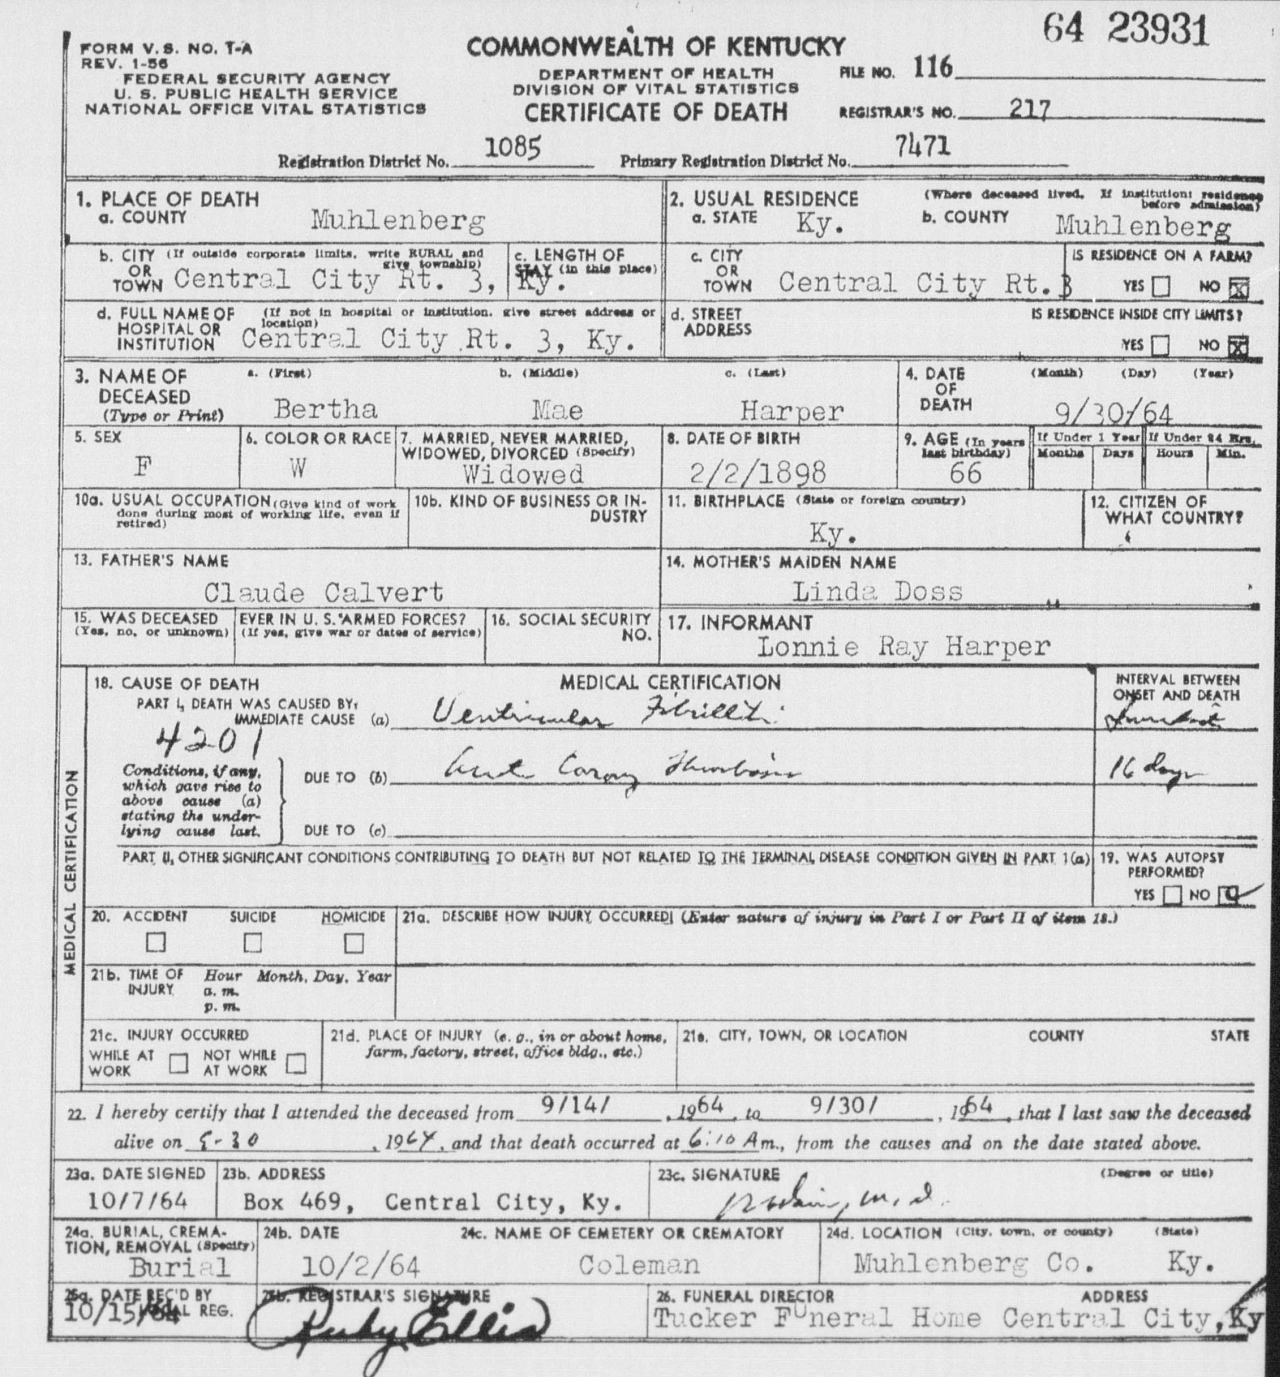 64 23931
FORM V. S. NO. T-A
REV. 1-56
FEDERAL SECURITY AGENCY
U. S. PUBLIC HEALTH SERVICE
NATIONAL OFFICE VITAL STATISTICS
COMMONWEALTH OF KENTUCKY
DEPARTMENT OF HEALTH
DIVISION OF VITAL STATISTICS
CERTIFICATE OF DEATH
FILE NO. 116
REGISTRAR'S NO. 217
Registration District No. 1085 Primary Registration District No. 7471
1. PLACE OF DEATH
a. COUNTY Muhlenberg
2. USUAL RESIDENCE (Where deceased lived. If institution: residence before admission)
a. STATE Ky. b. COUNTY Muhlenberg
b. CITY (If outside corporate limits, write RURAL and give township)
OR
TOWN Central City Rt. 3, Ky.
c. LENGTH OF STAY (in this place)
c. CITY
OR
TOWN Central City Rt. 3
IS RESIDENCE ON A FARM?
YES NO X
d. FULL NAME OF (If not in hospital or institution, give street address or location)
HOSPITAL OR
INSTITUTION Central City Rt. 3, Ky.
d. STREET
ADDRESS
IS RESIDENCE INSIDE CITY LIMITS?
YES NO X
3. NAME OF
DECEASED
(Type or Print)
a. (First) b. (Middle) c. (Last)
Bertha Mae Harper
4. DATE
OF
DEATH
(Month) (Day) (Year)
9/30/64
5. SEX
F
6. COLOR OR RACE
W
7. MARRIED, NEVER MARRIED,
WIDOWED, DIVORCED (Specify)
Widowed
8. DATE OF BIRTH
2/2/1898
9. AGE (In years last birthday)
66
If Under 1 Year
Months Days
If Under 24 Hrs.
Hours Min.
10a. USUAL OCCUPATION (Give kind of work
done during most of working life, even if
retired)
10b. KIND OF BUSINESS OR IN-
DUSTRY
11. BIRTHPLACE (State or foreign country)
Ky.
12. CITIZEN OF
WHAT COUNTRY?
13. FATHER'S NAME
Claude Calvert
14. MOTHER'S MAIDEN NAME
Linda Doss
15. WAS DECEASED EVER IN U. S. ARMED FORCES?
(Yes, no, or unknown) (If yes, give war or dates of service)
16. SOCIAL SECURITY
NO.
17. INFORMANT
Lonnie Ray Harper
MEDICAL CERTIFICATION
18. CAUSE OF DEATH MEDICAL CERTIFICATION
INTERVAL BETWEEN
ONSET AND DEATH
PART I. DEATH WAS CAUSED BY:
IMMEDIATE CAUSE (a) Ventricular
4201
Conditions, if any,
which gave rise to
above cause (a)
stating the under-
lying cause last.
DUE TO (b) Acute Coronary Thrombosis 16 days
DUE TO (c)
PART II. OTHER SIGNIFICANT CONDITIONS CONTRIBUTING TO DEATH BUT NOT RELATED TO THE TERMINAL DISEASE CONDITION GIVEN IN PART 1(a)
19. WAS AUTOPSY
PERFORMED?
YES NO
20. ACCIDENT SUICIDE HOMICIDE
21a. DESCRIBE HOW INJURY OCCURRED (Enter nature of injury in Part I or Part II of item 18.)
21b. TIME OF
INJURY
Hour Month, Day, Year
a. m.
p. m.
21c. INJURY OCCURRED
WHILE AT
WORK
NOT WHILE
AT WORK
21d. PLACE OF INJURY (e. g., in or about home,
farm, factory, street, office bldg., etc.)
21e. CITY, TOWN, OR LOCATION COUNTY STATE
22. I hereby certify that I attended the deceased from 9/14/, 1964, to 9/30/, 1964, that I last saw the deceased
alive on 9-30, 1964, and that death occurred at 6:10 Am., from the causes and on the date stated above.
23a. DATE SIGNED
10/7/64
23b. ADDRESS
Box 469, Central City, Ky.
23c. SIGNATURE (Degree or title)
M.D.
24a. BURIAL, CREMA-
TION, REMOVAL (Specify)
Burial
24b. DATE
10/2/64
24c. NAME OF CEMETERY OR CREMATORY
Coleman
24d. LOCATION (City, town, or county) (State)
Muhlenberg Co. Ky.
25a. DATE REC'D BY
LOCAL REG.
10/15/64
25b. REGISTRAR'S SIGNATURE
Ruby Ellis
26. FUNERAL DIRECTOR ADDRESS
Tucker Funeral Home Central City, Ky